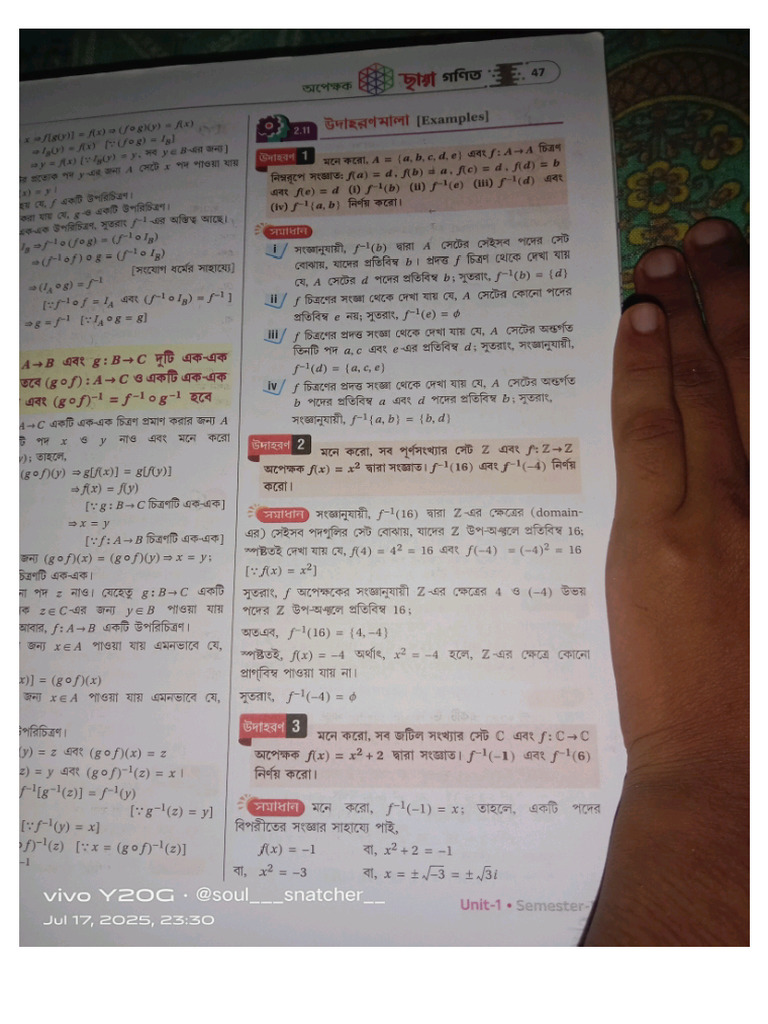 অপেক্ষক ছায়া গণিত 47
x ⇒ f[g(y)] = f(x) ⇒ (f∘g)(y) = f(x)
⇒ I_B(y) = f(x) [∵ (f∘g) = I_B]
⇒ y = f(x) [∵ I_B(y) = y, সব y∈B-এর জন্য]
প্রত্যেক পদ y-এর জন্য A সেটে x পদ পাওয়া যায়
(x) = y।
হয় যে, f একটি উপরিচিত্রণ।
করা যায় যে, g-ও একটি উপরিচিত্রণ।
এক-এক উপরিচিত্রণ, সুতরাং f⁻¹-এর অস্তিত্ব আছে।
I_B ⇒ f⁻¹∘(f∘g) = (f⁻¹∘I_B)
⇒ (f⁻¹∘f)∘g = (f⁻¹∘I_B)
[সংযোগ ধর্মের সাহায্যে]
⇒ (I_A∘g) = f⁻¹
[∵ f⁻¹∘f = I_A এবং (f⁻¹∘I_B) = f⁻¹]
⇒ g = f⁻¹ [∵ I_A∘g = g]
A→B এবং g : B→C দুটি এক-এক
তবে (g∘f) : A→C ও একটি এক-এক
এবং (g∘f)⁻¹ = f⁻¹∘g⁻¹ হবে
A→C একটি এক-এক চিত্রণ প্রমাণ করার জন্য A
টি পদ x ও y নাও এবং মনে করো
y); তাহলে,
(g∘f)(y) ⇒ g[f(x)] = g[f(y)]
⇒ f(x) = f(y)
[∵ g : B→C চিত্রণটি এক-এক]
⇒ x = y
[∵ f : A→B চিত্রণটি এক-এক]
জন্য (g∘f)(x) = (g∘f)(y) ⇒ x = y;
চিত্রণটি এক-এক।
না পদ z নাও। যেহেতু g : B→C একটি
ক z∈C-এর জন্য y∈B পাওয়া যায়
আবার, f : A→B একটি উপরিচিত্রণ।
জন্য x∈A পাওয়া যায় এমনভাবে যে,
x)] = (g∘f)(x)
জন্য x∈A পাওয়া যায় এমনভাবে যে,
উপরিচিত্রণ।
(y) = z এবং (g∘f)(x) = z
z) = y এবং (g∘f)⁻¹(z) = x।
f⁻¹[g⁻¹(z)] = f⁻¹(y)
[∵ g⁻¹(z) = y]
[∵ f⁻¹(y) = x]
∘f)⁻¹(z) [∵ x = (g∘f)⁻¹(z)]
⁻¹
2.11 উদাহরণমালা [Examples]
উদাহরণ 1 মনে করো, A = {a, b, c, d, e} এবং f : A→A চিত্রণ
নিম্নরূপে সংজ্ঞাত: f(a) = d, f(b) = a, f(c) = d, f(d) = b
এবং f(e) = d (i) f⁻¹(b) (ii) f⁻¹(e) (iii) f⁻¹(d) এবং
(iv) f⁻¹{a, b} নির্ণয় করো।
সমাধান
i সংজ্ঞানুযায়ী, f⁻¹(b) দ্বারা A সেটের সেইসব পদের সেট
বোঝায়, যাদের প্রতিবিম্ব b। প্রদত্ত f চিত্রণ থেকে দেখা যায়
যে, A সেটের d পদের প্রতিবিম্ব b; সুতরাং, f⁻¹(b) = {d}
ii f চিত্রণের সংজ্ঞা থেকে দেখা যায় যে, A সেটের কোনো পদের
প্রতিবিম্ব e নয়; সুতরাং, f⁻¹(e) = ϕ
iii f চিত্রণের প্রদত্ত সংজ্ঞা থেকে দেখা যায় যে, A সেটের অন্তর্গত
তিনটি পদ a, c এবং e-এর প্রতিবিম্ব d; সুতরাং, সংজ্ঞানুযায়ী,
f⁻¹(d) = {a, c, e}
iv f চিত্রণের প্রদত্ত সংজ্ঞা থেকে দেখা যায় যে, A সেটের অন্তর্গত
b পদের প্রতিবিম্ব a এবং d পদের প্রতিবিম্ব b; সুতরাং,
সংজ্ঞানুযায়ী, f⁻¹{a, b} = {b, d}
উদাহরণ 2 মনে করো, সব পূর্ণসংখ্যার সেট Z এবং f : Z→Z
অপেক্ষক f(x) = x² দ্বারা সংজ্ঞাত। f⁻¹(16) এবং f⁻¹(−4) নির্ণয়
করো।
সমাধান সংজ্ঞানুযায়ী, f⁻¹(16) দ্বারা Z-এর ক্ষেত্রের (domain-
এর) সেইসব পদগুলির সেট বোঝায়, যাদের Z উপ-অঞ্চলে প্রতিবিম্ব 16;
স্পষ্টতই দেখা যায় যে, f(4) = 4² = 16 এবং f(−4) = (−4)² = 16
[∵ f(x) = x²]
সুতরাং, f অপেক্ষকের সংজ্ঞানুযায়ী Z-এর ক্ষেত্রের 4 ও (−4) উভয়
পদের Z উপ-অঞ্চলে প্রতিবিম্ব 16;
অতএব, f⁻¹(16) = {4, −4}
স্পষ্টতই, f(x) = −4 অর্থাৎ, x² = −4 হলে, Z-এর ক্ষেত্রে কোনো
প্রাগ্‌বিম্ব পাওয়া যায় না।
সুতরাং, f⁻¹(−4) = ϕ
উদাহরণ 3 মনে করো, সব জটিল সংখ্যার সেট C এবং f : C→C
অপেক্ষক f(x) = x² + 2 দ্বারা সংজ্ঞাত। f⁻¹(−1) এবং f⁻¹(6)
নির্ণয় করো।
সমাধান মনে করো, f⁻¹(−1) = x; তাহলে, একটি পদের
বিপরীতের সংজ্ঞার সাহায্যে পাই,
f(x) = −1 বা, x² + 2 = −1
বা, x² = −3 বা, x = ±√−3 = ±√3i
Unit-1 • Semester-
vivo Y20G · @soul___snatcher__
Jul 17, 2025, 23:30